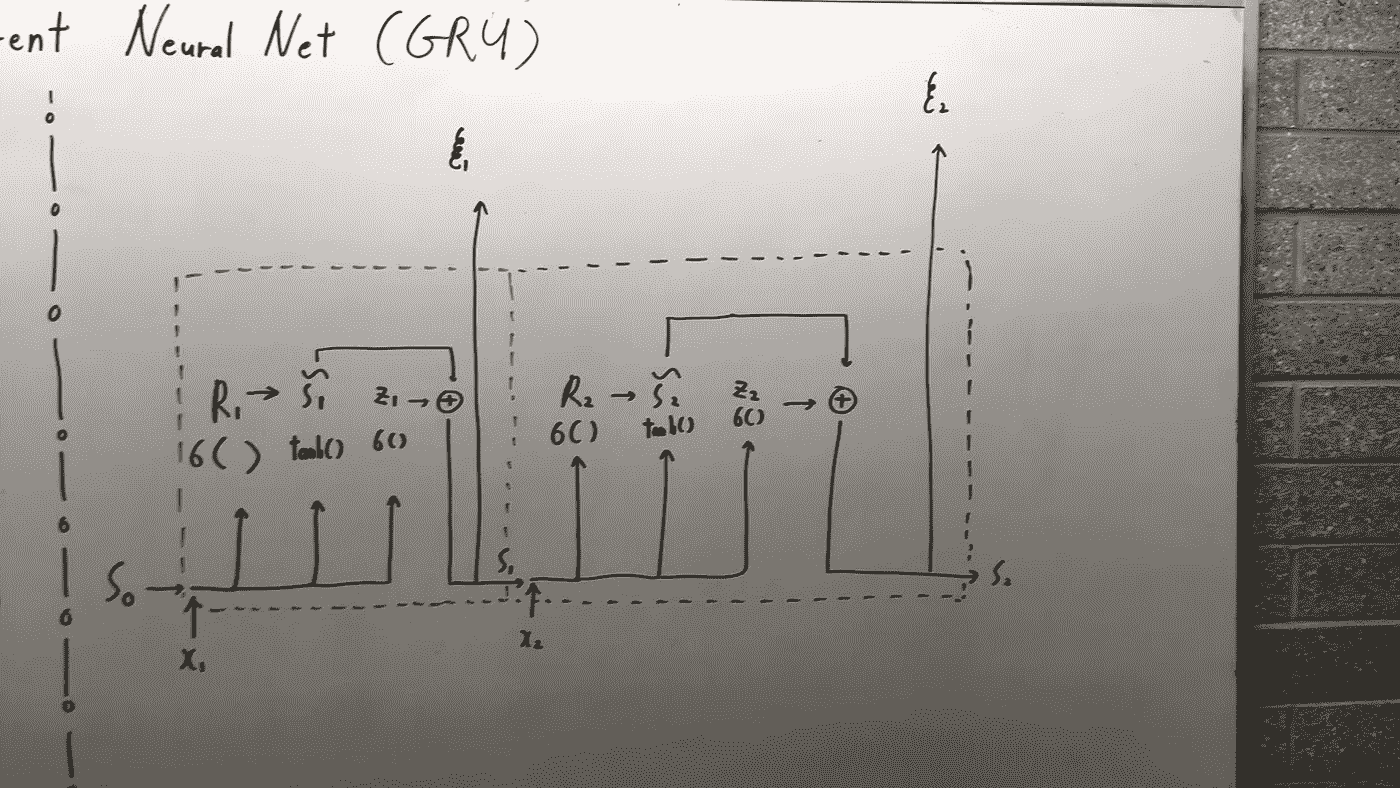 ent Neural Net (GRU)
ξ₂
ξ₁
R₁ → S̃₁ z₁ → ⊕
σ( ) tanh() σ()
R₂ → S̃₂ z₂ → ⊕
σ() tanh() σ()
S₀
S₁
S₂
x₁
x₂